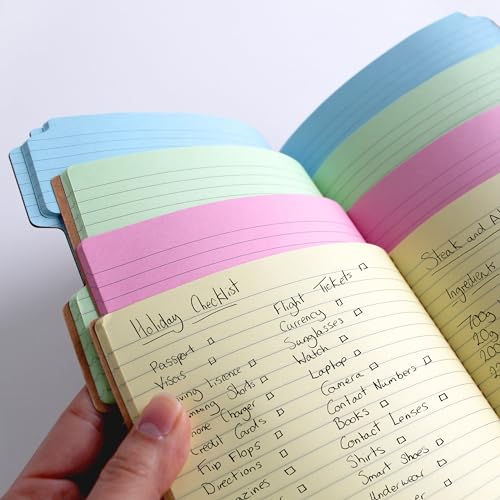 Holiday Checklist
Passport
Visors
iving Lisence
mming Shorts
hone Charger
redit Cards
Flip Flops
Directions
azines
Flight Tickets
Currency
Sunglasses
Watch
Laptop
Camera
Contact Numbers
Books
Contact Lenses
Shirts
Smart Shoes
nderwear
Steak and A
Ingredients
700g
10g
20g